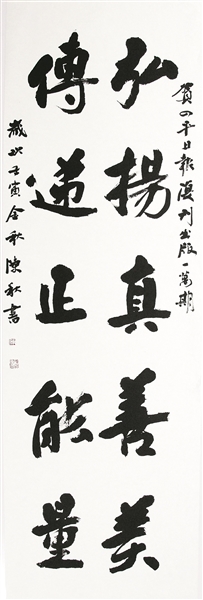 賀四平日報復刊出版一萬期
弘揚真善美
傳遞正能量
歲次壬寅金秋陳秋書